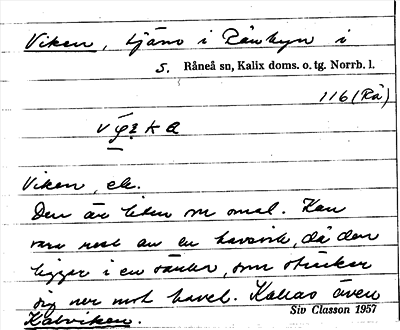 Viken, tjärn i Rånbyn i
S. Råneå sn, Kalix doms. o. tg. Norrb. l.
116 (Rå)
Viken, ek.
Den är liten o smal. Kan
vara rest av en havsvik, då den
ligger i en sänka, som sträcker
sig ner mot havet. Kallas även
Kalviken.
Siv Classon 1957